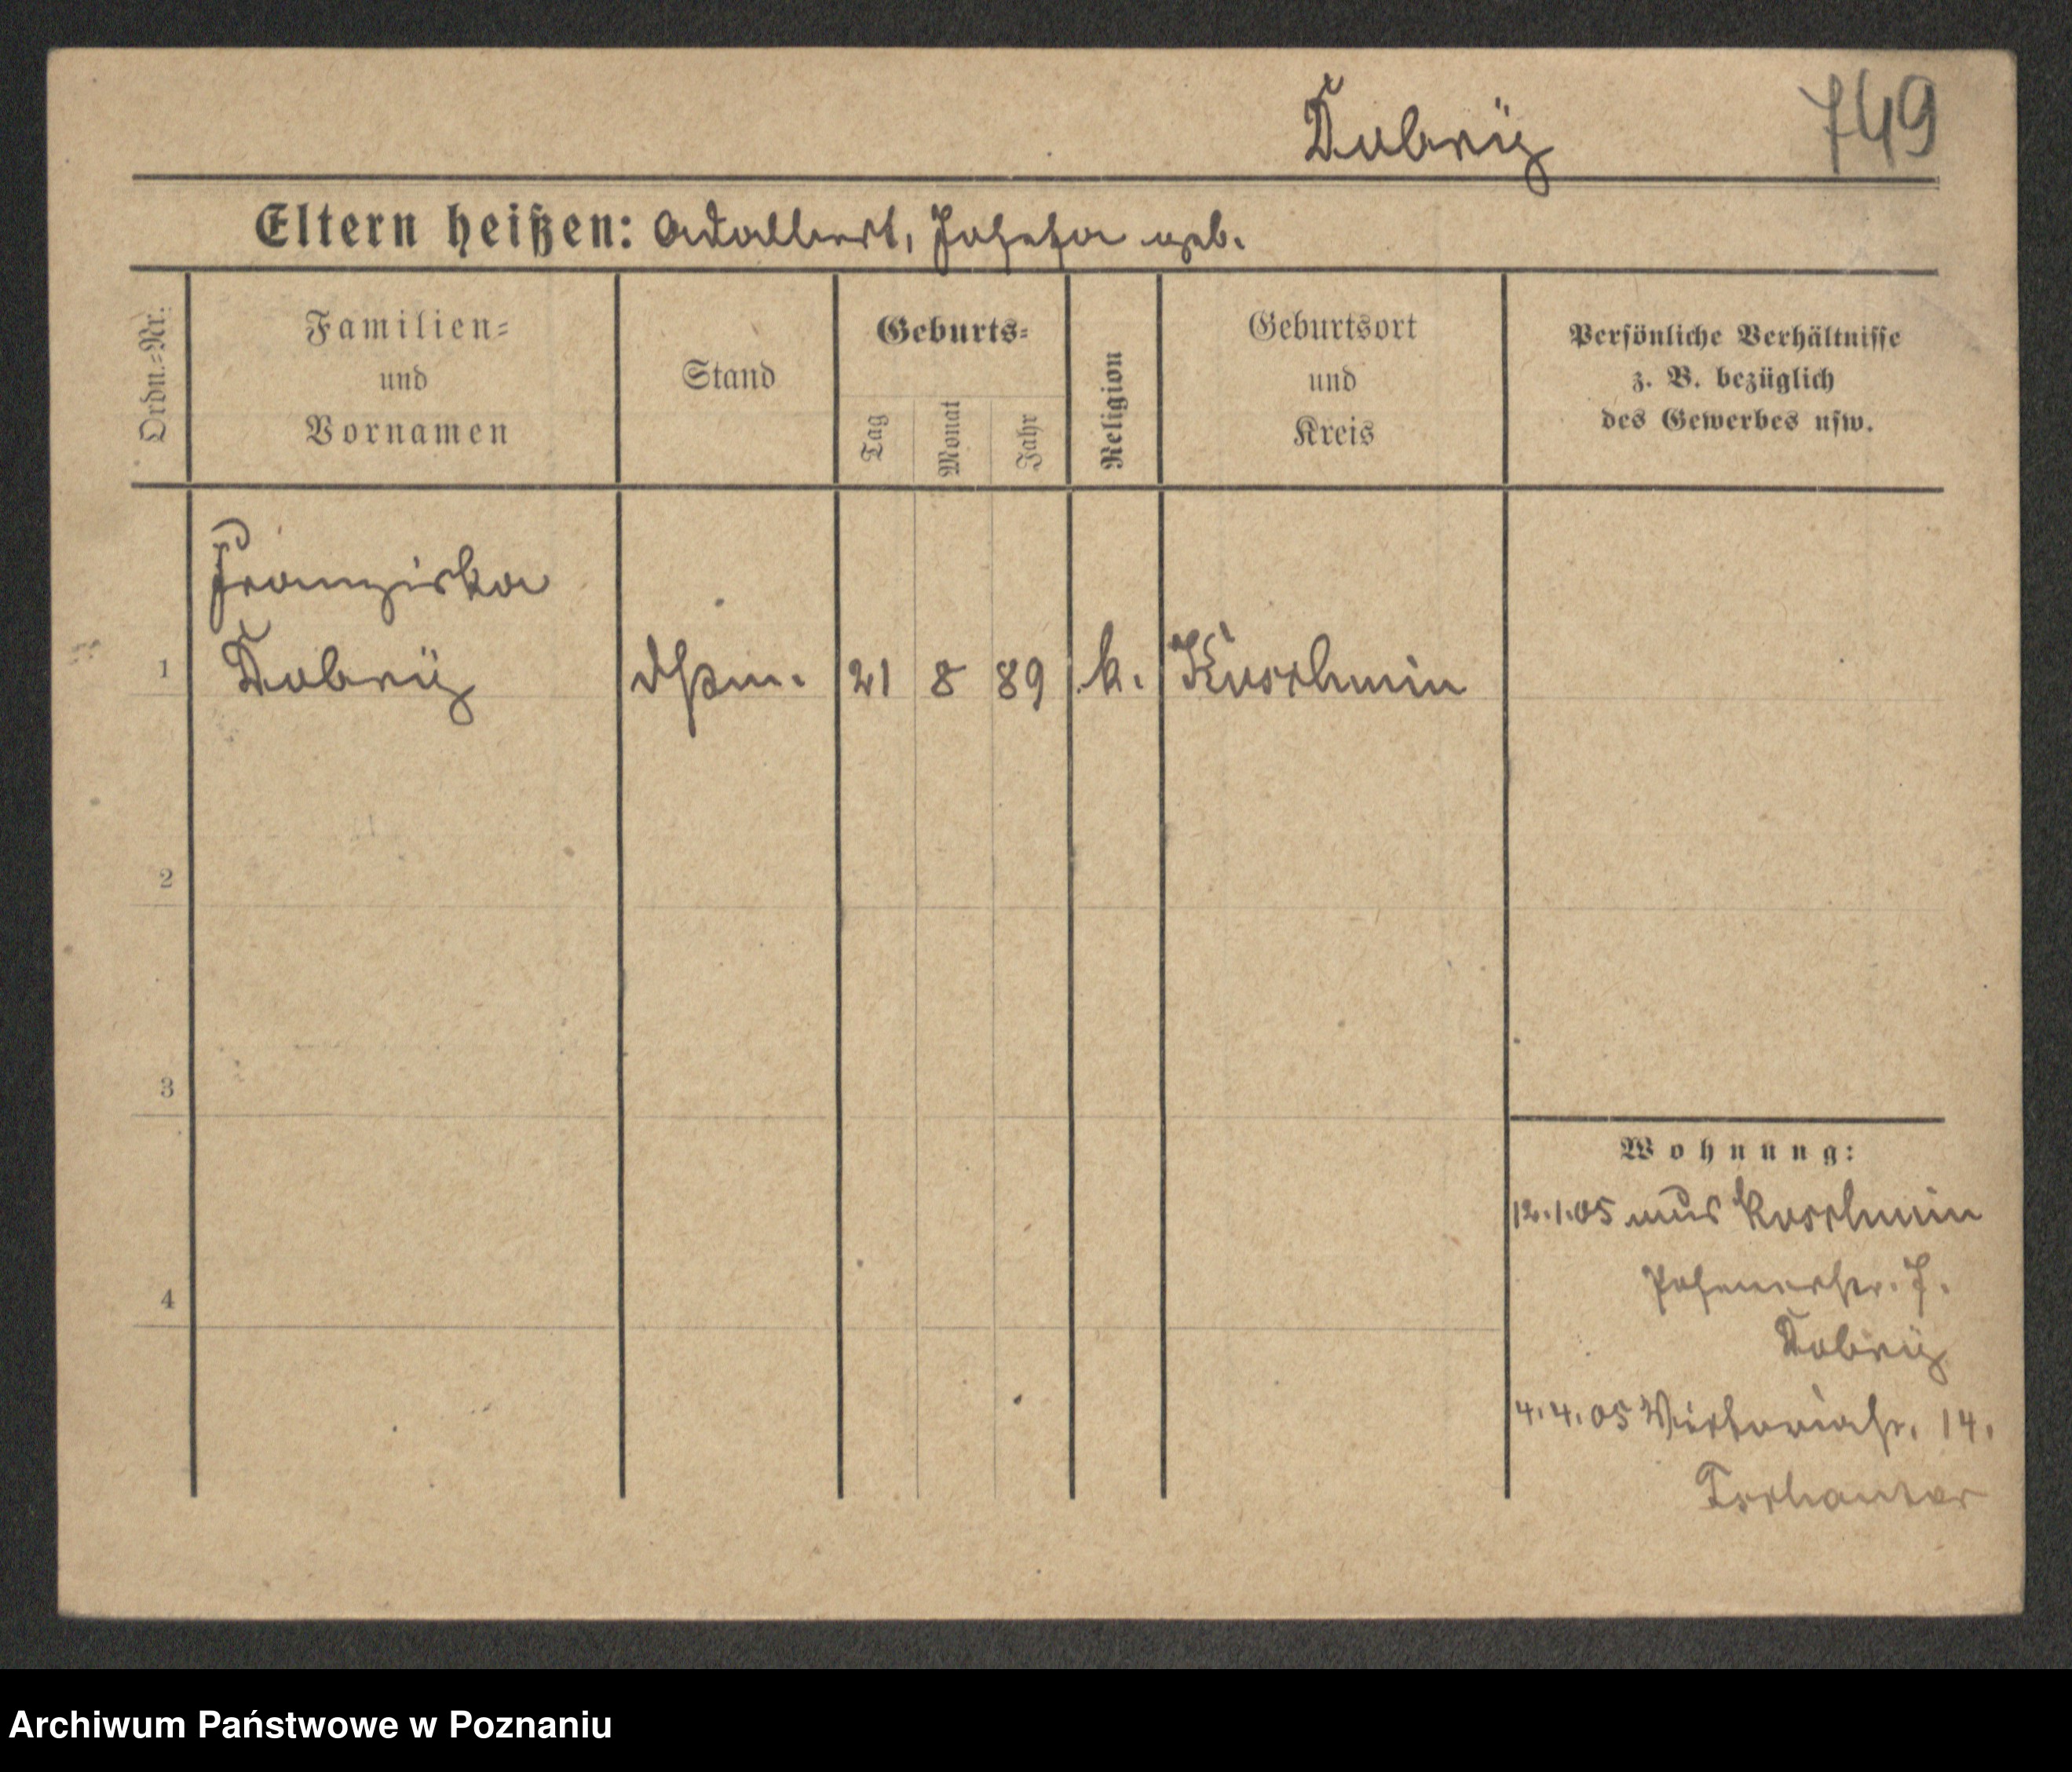 Dubriz
749
Eltern heißen: Adalbert, Josefa geb.
Ordn.=Nr.
Familien=
und
Vornamen
Stand
Geburts=
Tag
Monat
Jahr
Religion
Geburtsort
und
Kreis
Persönliche Verhältnisse
z. B. bezüglich
des Gewerbes usw.
Franziska
1
21
8
89
k.
Koschmin
2
3
Wohnung:
12.1.05 aus Koschmin
4
Posenerstr. 7.
4.4.05 Viktoriastr. 14.
Archiwum Państwowe w Poznaniu